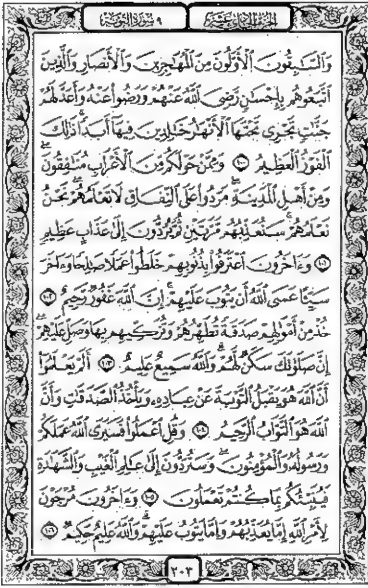 الجزء الحادي عشر
٩ سورة التوبة
وَٱلسَّٰبِقُونَ ٱلْأَوَّلُونَ مِنَ ٱلْمُهَٰجِرِينَ وَٱلْأَنصَارِ وَٱلَّذِينَ
ٱتَّبَعُوهُم بِإِحْسَٰنٍ رَّضِىَ ٱللَّهُ عَنْهُمْ وَرَضُوا۟ عَنْهُ وَأَعَدَّ لَهُمْ
جَنَّٰتٍ تَجْرِى تَحْتَهَا ٱلْأَنْهَٰرُ خَٰلِدِينَ فِيهَآ أَبَدًا ۚ ذَٰلِكَ
ٱلْفَوْزُ ٱلْعَظِيمُ ١٠٠ وَمِمَّنْ حَوْلَكُم مِّنَ ٱلْأَعْرَابِ مُنَٰفِقُونَ ۖ
وَمِنْ أَهْلِ ٱلْمَدِينَةِ ۖ مَرَدُوا۟ عَلَى ٱلنِّفَاقِ لَا تَعْلَمُهُمْ ۖ نَحْنُ
نَعْلَمُهُمْ ۚ سَنُعَذِّبُهُم مَّرَّتَيْنِ ثُمَّ يُرَدُّونَ إِلَىٰ عَذَابٍ عَظِيمٍ
١٠١ وَءَاخَرُونَ ٱعْتَرَفُوا۟ بِذُنُوبِهِمْ خَلَطُوا۟ عَمَلًا صَٰلِحًا وَءَاخَرَ
سَيِّئًا عَسَى ٱللَّهُ أَن يَتُوبَ عَلَيْهِمْ ۚ إِنَّ ٱللَّهَ غَفُورٌ رَّحِيمٌ ١٠٢
خُذْ مِنْ أَمْوَٰلِهِمْ صَدَقَةً تُطَهِّرُهُمْ وَتُزَكِّيهِم بِهَا وَصَلِّ عَلَيْهِمْ ۖ
إِنَّ صَلَوٰتَكَ سَكَنٌ لَّهُمْ ۗ وَٱللَّهُ سَمِيعٌ عَلِيمٌ ١٠٣ أَلَمْ يَعْلَمُوٓا۟
أَنَّ ٱللَّهَ هُوَ يَقْبَلُ ٱلتَّوْبَةَ عَنْ عِبَادِهِۦ وَيَأْخُذُ ٱلصَّدَقَٰتِ وَأَنَّ
ٱللَّهَ هُوَ ٱلتَّوَّابُ ٱلرَّحِيمُ ١٠٤ وَقُلِ ٱعْمَلُوا۟ فَسَيَرَى ٱللَّهُ عَمَلَكُمْ
وَرَسُولُهُۥ وَٱلْمُؤْمِنُونَ ۖ وَسَتُرَدُّونَ إِلَىٰ عَٰلِمِ ٱلْغَيْبِ وَٱلشَّهَٰدَةِ
فَيُنَبِّئُكُم بِمَا كُنتُمْ تَعْمَلُونَ ١٠٥ وَءَاخَرُونَ مُرْجَوْنَ
لِأَمْرِ ٱللَّهِ إِمَّا يُعَذِّبُهُمْ وَإِمَّا يَتُوبُ عَلَيْهِمْ ۗ وَٱللَّهُ عَلِيمٌ حَكِيمٌ ١٠٦
٢٠٣